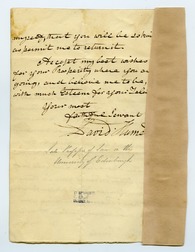 my respect you will be so kind
as permit me to return it.
Accept my best wishes
for your Prosperity where you are
going, and believe me to be,
with much Esteem for your
Your most
faithful Servant
David Hume
Late Professor of Law in the
University of Edinburgh